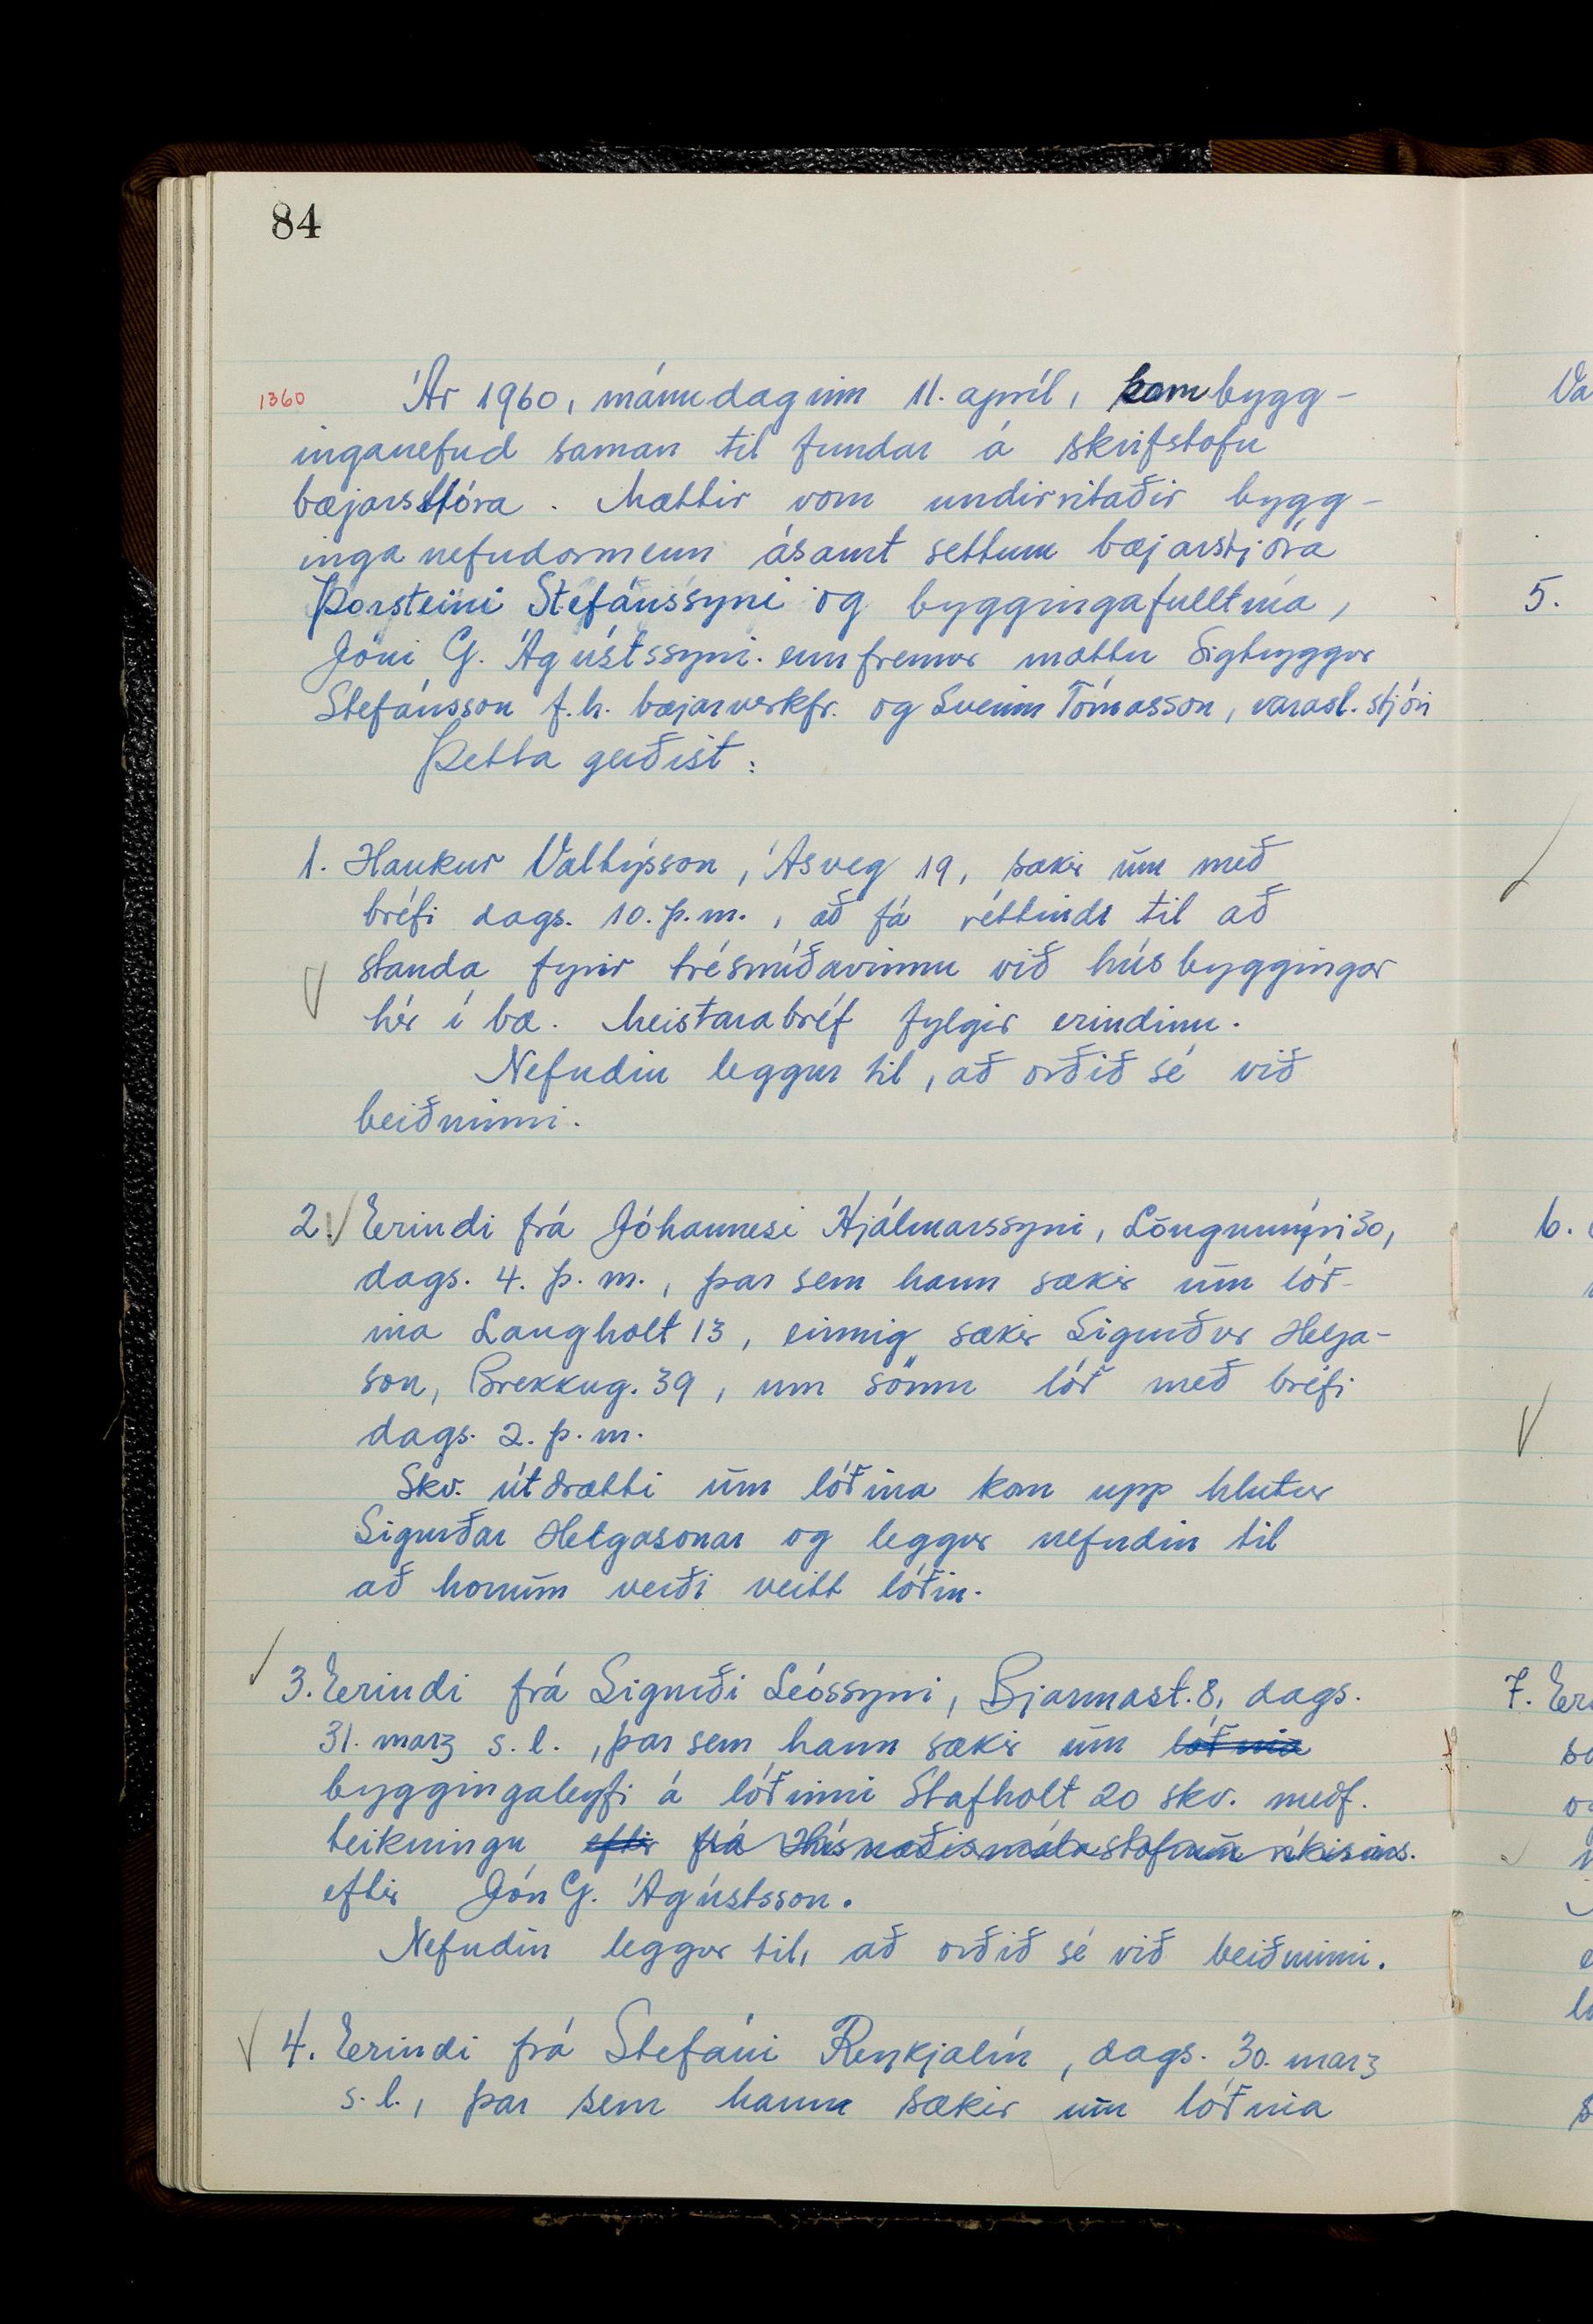 84
1360 Ár 1960, mánudaginn 11. apríl, kom bygg-
inganefnd saman til fundar á skrifstofu
bæjarstjóra. Mættir voru undirritaðir bygg-
inganefndarmenn ásamt settum bæjarstjóra
Þorsteini Stefánssyni og byggingafulltrúa,
Jóni G. Ágústssyni. ennfremur mættu Sigtryggur
Stefánsson f.h. bæjarverkfr. og Sveinn Tómasson, varasl.stjóri
Þetta gerðist:
1. Haukur Valtýsson, Ásveg 19, sækir um með
bréfi dags. 10. þ.m., að fá réttindi til að
standa fyrir trésmíðavinnu við húsbyggingar
hér í bæ. Meistarabréf fylgir erindinu.
Nefndin leggur til, að orðið sé við
beiðninni.
2. Erindi frá Jóhannesi Hjálmarssyni, Löngumýri 30,
dags. 4. þ.m., þar sem hann sækir um lóð-
ina Langholt 13, einnig sækir Sigurður Helga-
son, Brekkug. 39, um sömu lóð með bréfi
dags. 2. þ.m.
Skv. útdrætti um lóðina kom upp hlutur
Sigurðar Helgasonar og leggur nefndin til
að honum verði veitt lóðin.
3. Erindi frá Sigurði Leóssyni, Bjarmast. 8, dags.
31. marz s.l., þar sem hann sækir um lóðina
byggingaleyfi á lóðinni Stafholt 20 skv. meðf.
teikningu eftir frá Húsnæðismálastofnun ríkisins.
eftir Jón G. Ágústsson.
Nefndin leggur til, að orðið sé við beiðninni.
4. Erindi frá Stefáni Reykjalín, dags. 30. marz
s.l., þar sem hann sækir um lóðina
5.
6.
7.